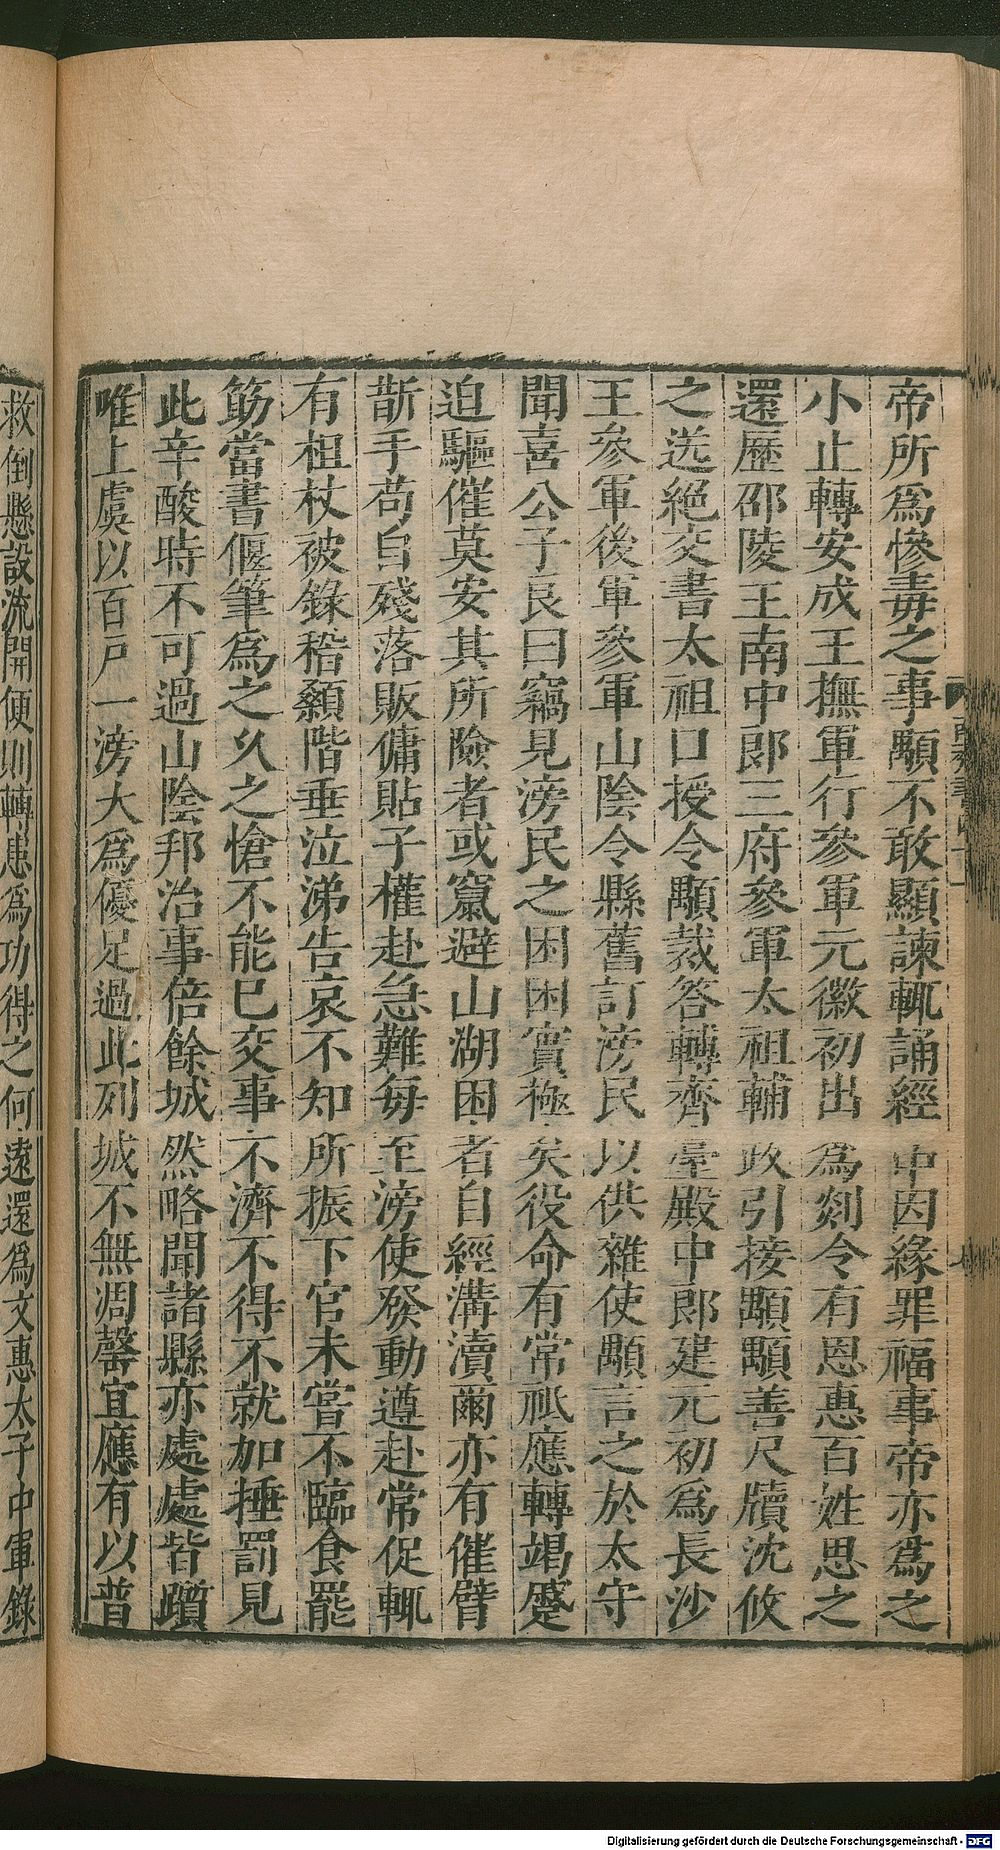 帝所爲慘毒之事顒不敢顯諫輒誦經中因緣罪福事帝亦爲之
小止轉安成王撫軍行參軍元徽初出爲剡令有恩惠百姓思之
還歷邵陵王南中郎三府參軍太祖輔政引接顒顒善尺牘沈攸
之送絕交書太祖口授令顒裁答轉齊臺殿中郎建元初爲長沙
王參軍後軍參軍山陰令縣舊訂滂民以供雜使顒言之於太守
聞喜公子良曰竊見滂民之困困實極矣役命有常祗應轉竭蹙
迫驅催莫安其所險者或竄避山湖困者自經溝瀆爾亦有催臂
斮手苟自殘落販傭貼子權赴急難每至滂使發動遵赴常促輒
有柤杖被錄稽顙階垂泣涕告哀不知所振下官未嘗不臨食罷
筯當書偃筆爲之久之愴不能已交事不濟不得不就加捶罰見
此辛酸時不可過山陰邦治事倍餘城然略聞諸縣亦處處皆躓
唯上虞以百戶一滂大爲優足過此列城不無凋罄宜應有以普
救倒懸設流開便則轉患爲功得之何遠還爲文惠太子中軍錄
Digitalisierung gefördert durch die Deutsche Forschungsgemeinschaft - DFG